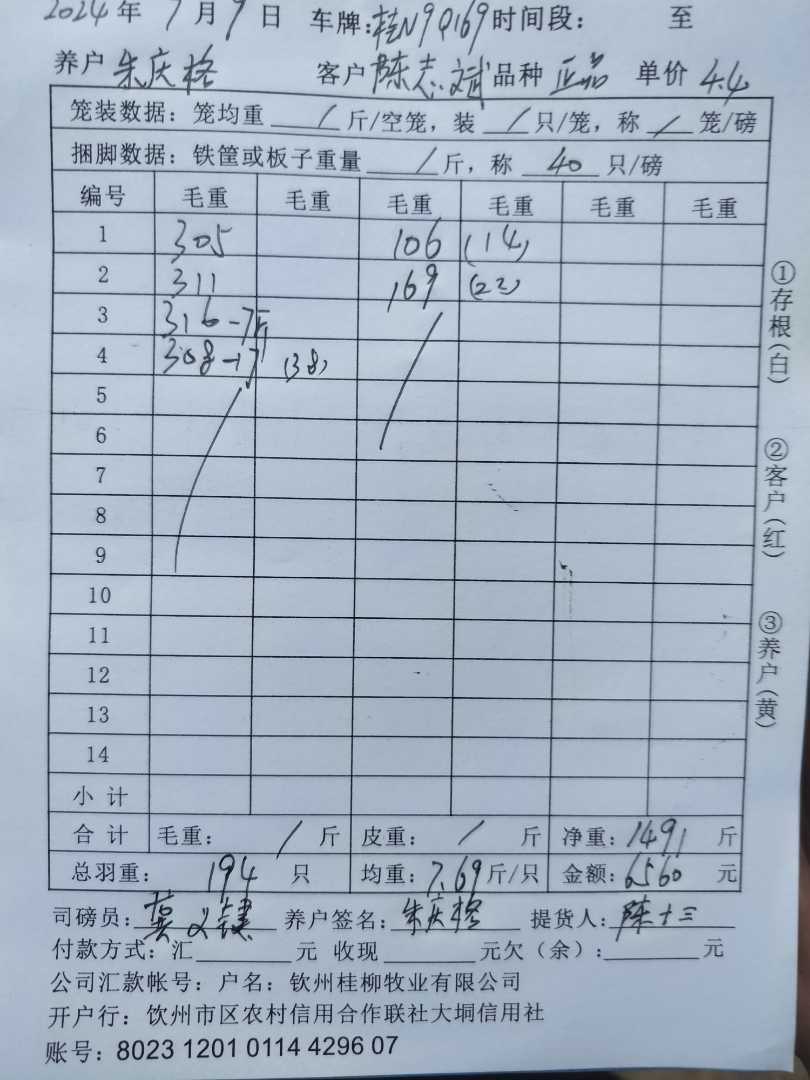 2024年7月9日 车牌:桂N9Q169时间段: 至
养户 朱庆格 客户 陈志斌 品种 正品 单价 4.4
笼装数据: 笼均重 / 斤/空笼, 装 / 只/笼, 称 / 笼/磅
捆脚数据: 铁筐或板子重量 / 斤, 称 40 只/磅
编号 毛重 毛重 毛重 毛重 毛重 毛重
1 305 106 (14)
2 311 169 (22)
3 316-7斤
4 308-17 (38)
5
6
7
8
9
10
11
12
13
14
小计
合计 毛重: / 斤 皮重: / 斤 净重: 1491 斤
总羽重: 194 只 均重: 7.69斤/只 金额: 6560 元
司磅员: 养户签名: 朱庆格 提货人: 陈十三
付款方式: 汇 元 收现 元欠(余): 元
公司汇款帐号: 户名: 钦州桂柳牧业有限公司
开户行: 饮州市区农村信用合作联社大垌信用社
账号: 8023 1201 0114 4296 07
①存根(白)
②客户(红)
③养户(黄)